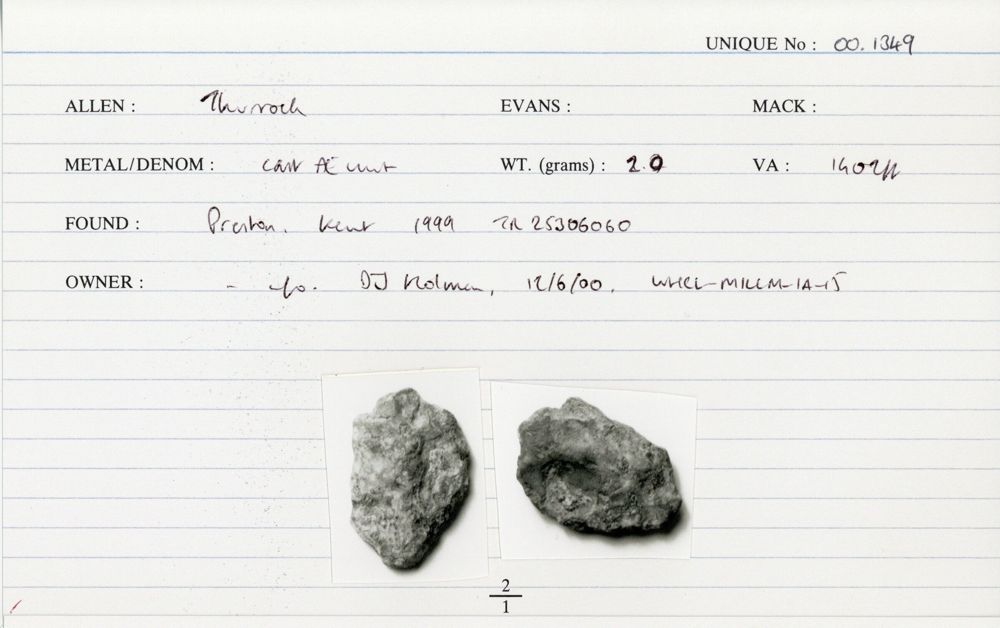 UNIQUE No : 00.1349
ALLEN : Thurrock EVANS : MACK :
METAL/DENOM : cast Æ unit WT. (grams) : 2.0 VA : 1402ff
FOUND : Preston, Kent 1999 TR 25306060
OWNER : - DJ Holman, 12/6/00,
2
1